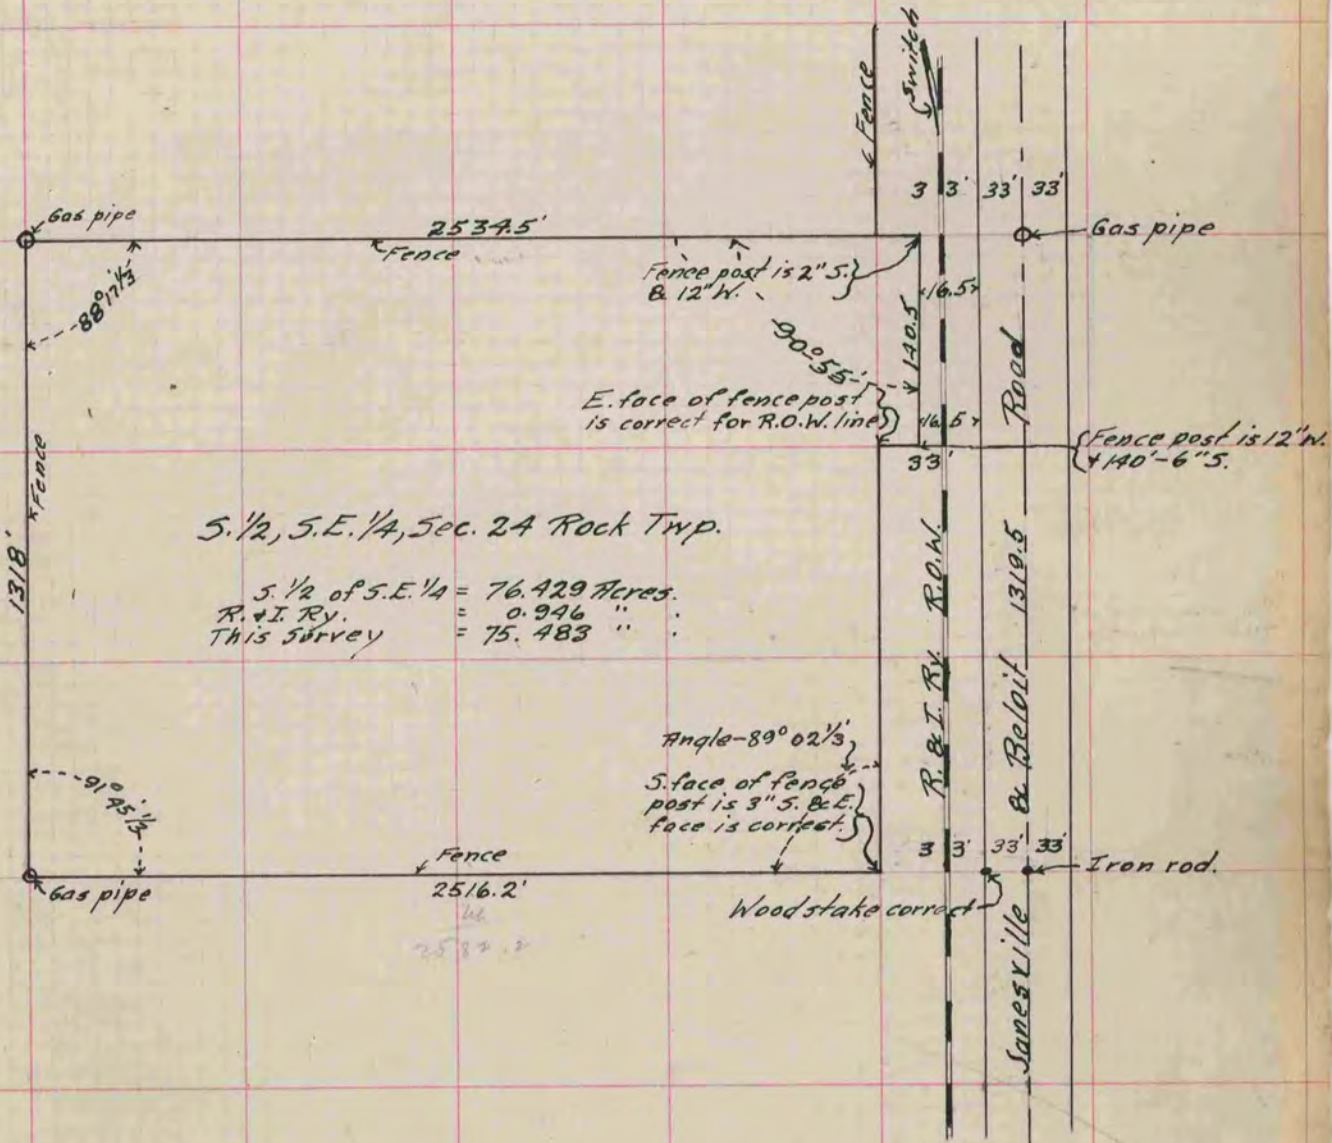 Switch
Fence
3 3' 33' 33'
Gas pipe
2534.5'
Fence
Gas pipe
Fence post is 2" S.
& 12" W.
88° 17 1/3'
16.5
140.5
90°-55'
E. face of fence post
is correct for R.O.W. line
16.5
33'
Fence post is 12" W.
& 140'-6" S.
Fence
1318'
S.1/2, S.E.1/4, Sec. 24 Rock Twp.
S.1/2 of S.E.1/4 = 76.429 Acres.
R. & I. Ry. = 0.946 " .
This Survey = 75.483 " .
R. & I. Ry. R.O.W.
Janesville & Beloit 1319.5 Road
Angle-89° 02 1/3'
S. face of fence
post is 3" S. & E.
face is correct.
91° 45 1/3'
3 3' 33' 33'
Iron rod.
Fence
2516.2'
Gas pipe
Wood stake correct
66
2582.2